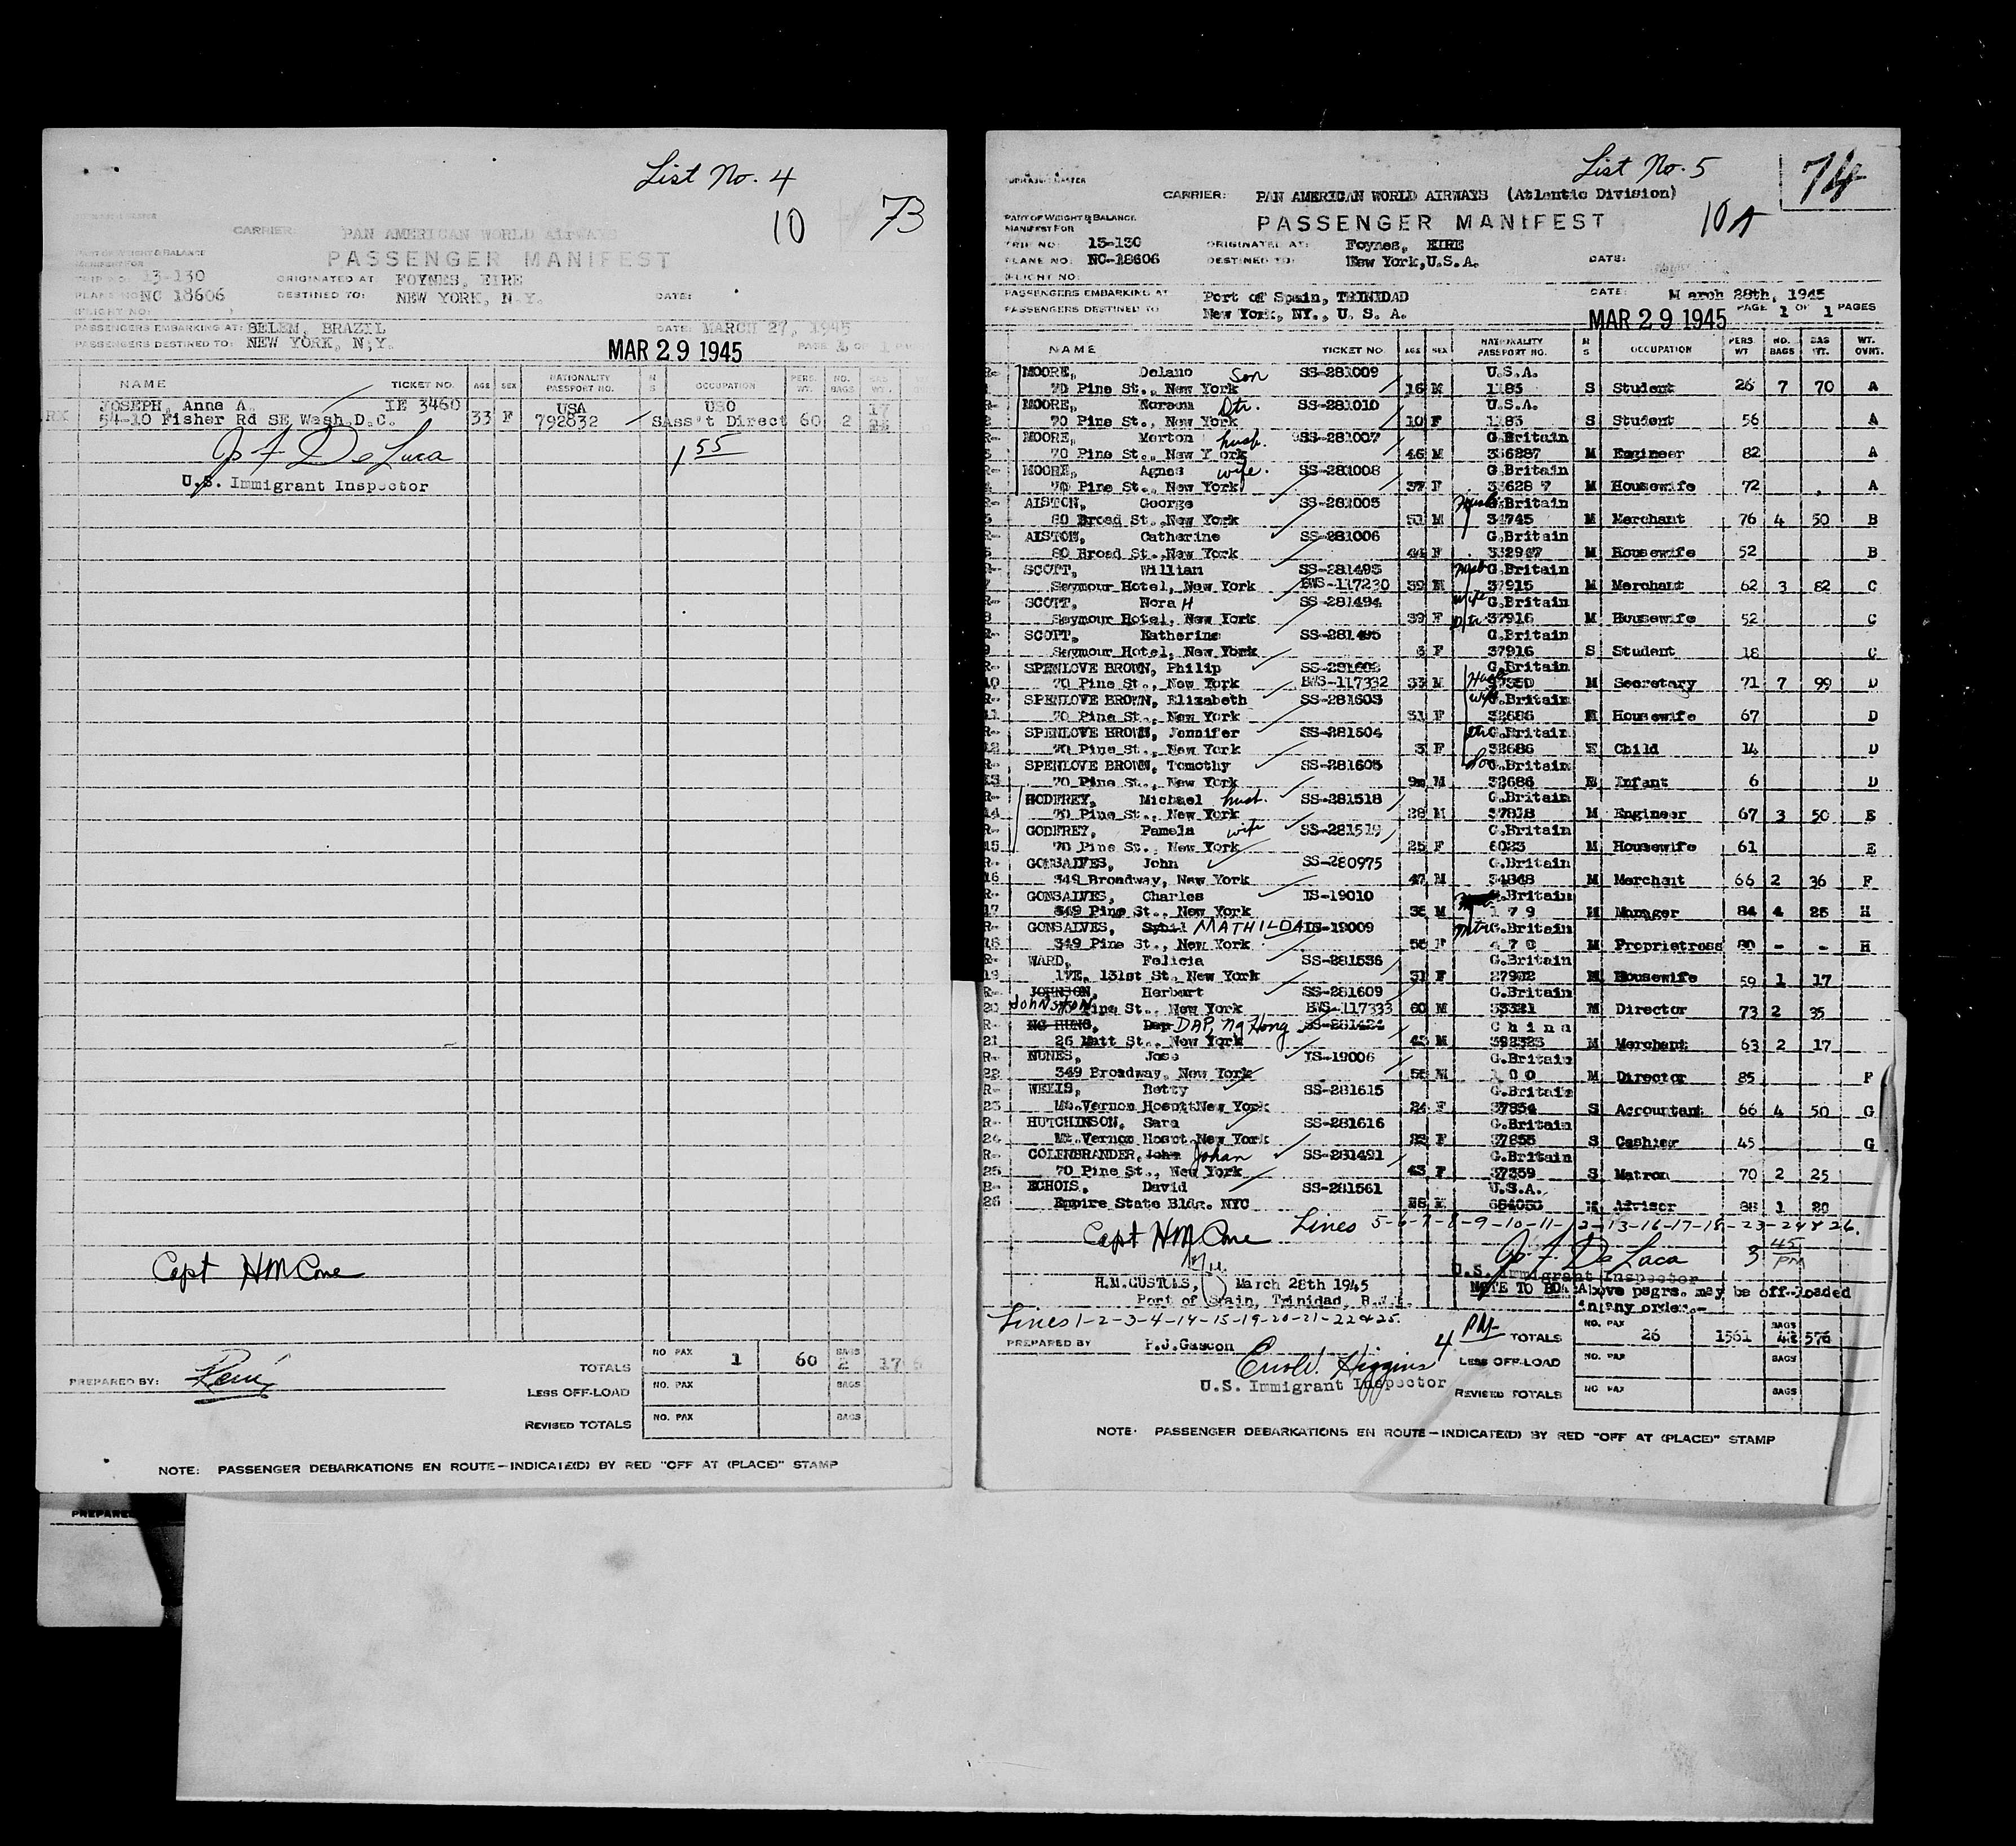 List No. 4
10 73
CARRIER: PAN AMERICAN WORLD AirWAYS
PART OF WEIGHT & BALANCE
PASSENGER MANIFEST
MANIFEST FOR
TRIP NO. 13-130 ORIGINATED AT FOYNES, EIRE
PLANE NO NC 18606 DESTINED TO: NEW YORK, N.Y. DATE:
FLIGHT NO:
PASSENGERS EMBARKING AT: BELEM, BRAZIL DATE: MARCH 27, 1945
PASSENGERS DESTINED TO: NEW YORK, N;Y. PAGE 1 OF 1
MAR 29 1945
NAME TICKET NO. AGE SEX NATIONALITY PASSPORT NO. M S OCCUPATION PERS. WT. NO. BAGS
JOSEPH, Anna A. IE 3460 USA USO 17
RX 54-10 Fisher Rd SE Wash.D.C. 33 F 792832 S Ass't Direct 60 2
Jo F De Luca 1 55
U.S. Immigrant Inspector
Capt HM Cone
TOTALS NO PAX 1 60 BAGS 2 17
PREPARED BY:
LESS OFF-LOAD NO. PAX BAGS
REVISED TOTALS NO. PAX BAGS
NOTE: PASSENGER DEBARKATIONS EN ROUTE—INDICATE(D) BY RED "OFF AT (PLACE)" STAMP
PREPARE
List No. 5 74
CARRIER: PAN AMERICAN WORLD AIRWAYS (Atlantic Division)
10A
PART OF WEIGHT & BALANCE PASSENGER MANIFEST
MANIFEST FOR
TRIP NO: 13-130 ORIGINATED AT: Foynes, EIRE
PLANE NO: NC-18606 DESTINED TO: New York,U.S.A. DATE:
FLIGHT NO:
PASSENGERS EMBARKING AT Port of Spain, TRINIDAD DATE: March 28th, 1945
PASSENGERS DESTINED TO New York, NY., U. S. A. PAGE 1 OF 1 PAGES
MAR 29 1945
NAME TICKET NO. AGE SEX NATIONALITY PASSPORT NO. M S OCCUPATION PERS. WT NO. BAGS BAG WT. WT. OVNT.
R- MOORE, Delano Son SS-281009 U.S.A.
1 70 Pine St., New York 16 M 1183 S Student 26 7 70 A
R- MOORE, Dtr. SS-281010 U.S.A.
2 70 Pine St., New York 10 F 1183 S Student 56 A
R- MOORE, Merton husb. SS-281007 G.Britain
3 70 Pine St., New York 46 M 336287 M Engineer 82 A
R- MOORE, Agnes wife. SS-281008 G.Britain
4 70 Pine St., New York 37 F 33628 7 M Housewife 72 A
R- ALSTON, George SS-281005 G.Britain
5 80 Broad St.,New York 51 M 34745 M Merchant 76 4 50 B
R- ALSTON, Catherine SS-281006 G.Britain
6 80 Broad St.,New York 44 F 332947 M Housewife 52 B
R- SCOTT, William SS-281493 G.Britain
7 Seymour Hotel, New York BWS-117230 39 M 37915 M Merchant 62 3 82 C
R- SCOTT, Nora H SS-281494 wife G.Britain
8 Seymour Hotel, New York 39 F 37916 M Housewife 52 C
R- SCOTT, Katherine SS-281495 Dtr G.Britain
9 Seymour Hotel, New York F 37916 S Student 18 C
R- SPENLOVE BROWN, Philip SS-281602 G.Britain
10 70 Pine St., New York BWS-117332 33 M M Secretary 71 7 99 D
R- SPENLOVE BROWN, Elizabeth SS-281603 wife G.Britain
11 70 Pine St., New York 31 F 32686 M Housewife 67 D
R- SPENLOVE BROWN, Jennifer SS-281604 dtr G.Britain
12 70 Pine St., New York 3 F 32686 Child 14 D
R- SPENLOVE BROWN, Tomothy SS-281605 Son G.Britain
13 70 Pine St., New York 9m M 32686 Infant 6 D
R- GODFREY, Michael husb. SS-281518 G.Britain
14 70 Pine St., New York 28 M 37818 M Engineer 67 3 50 E
R- GODFREY, Pamela wife SS-281519 G.Britain
15 70 Pine St., New York 25 F 6023 M Housewife 61 E
R- GONSALVES, John SS-280975 G.Britain
16 349 Broadway, New York 47 M 34848 M Merchant 66 2 36 F
R- GONSALVES, Charles IS-19010 G.Britain
17 349 Pine St., New York 36 M 1 7 9 M Manager 84 4 25 H
R- GONSALVES, Sybil MATHILDA IS-19009 G.Britain
18 349 Pine St., New York F 4 7 0 M Proprietress 80 - - H
R- WARD, Felicia SS-281536 G.Britain
19 17E, 131st St., New York 31 F 27902 M Housewife 59 1 17
R- JOHNSON, Herbert SS-281609 G.Britain
20 JOHNSTON Pine St., New York BWS-117333 60 M 33321 M Director 73 2 35
R- NG HUNG, Dap DAP, Ng Hong SS-281424 China
21 26 Matt St., New York 43 M 392323 M Merchant 63 2 17
R- NUNES, Jose IS-19006 G.Britain
22 349 Broadway, New York M 1 0 0 M Director 85 F
R- WELLS, Betty SS-281615 G.Britain
23 Mt.Vernon HospttNew York 24 F 37854 S Accountant 66 4 50 G
R- HUTCHINSON, Sara SS-281616 G.Britain
24 Mt.Vernon Hospt.New York F 37855 S Cashier 45 G
R- COLENBRANDER, John Johan SS-281491 G.Britain
25 70 Pine St., New York 43 F 37359 S Matron 70 2 25
R- ECHOLS, David SS-281561 U.S.A.
26 Empire State Bldg. NYC 684053 Advisor 88 1 20
Lines 5-6-7-8-9-10-11-12-13-16-17-18-23-24 & 26.
Capt HM Cone Jo F De Luca 3 45 PM
U.S. Immigrant Inspector
H.M.CUSTOMS, March 28th 1945 NOTE TO BDA: Above psgrs. may be off-loaded
Port of Spain, Trinidad, B.W.I. in any order.-
Lines 1-2-3-4-14-15-19-20-21-22 & 25.
PREPARED BY P.J.Gascon 4 PM TOTALS NO. PAX 26 1561 BAGS 42 576
LESS OFF-LOAD NO. PAX BAGS
U.S. Immigrant Inspector REVISED TOTALS NO PAX BAGS
NOTE: PASSENGER DEBARKATIONS EN ROUTE—INDICATE(D) BY RED "OFF AT (PLACE)" STAMP